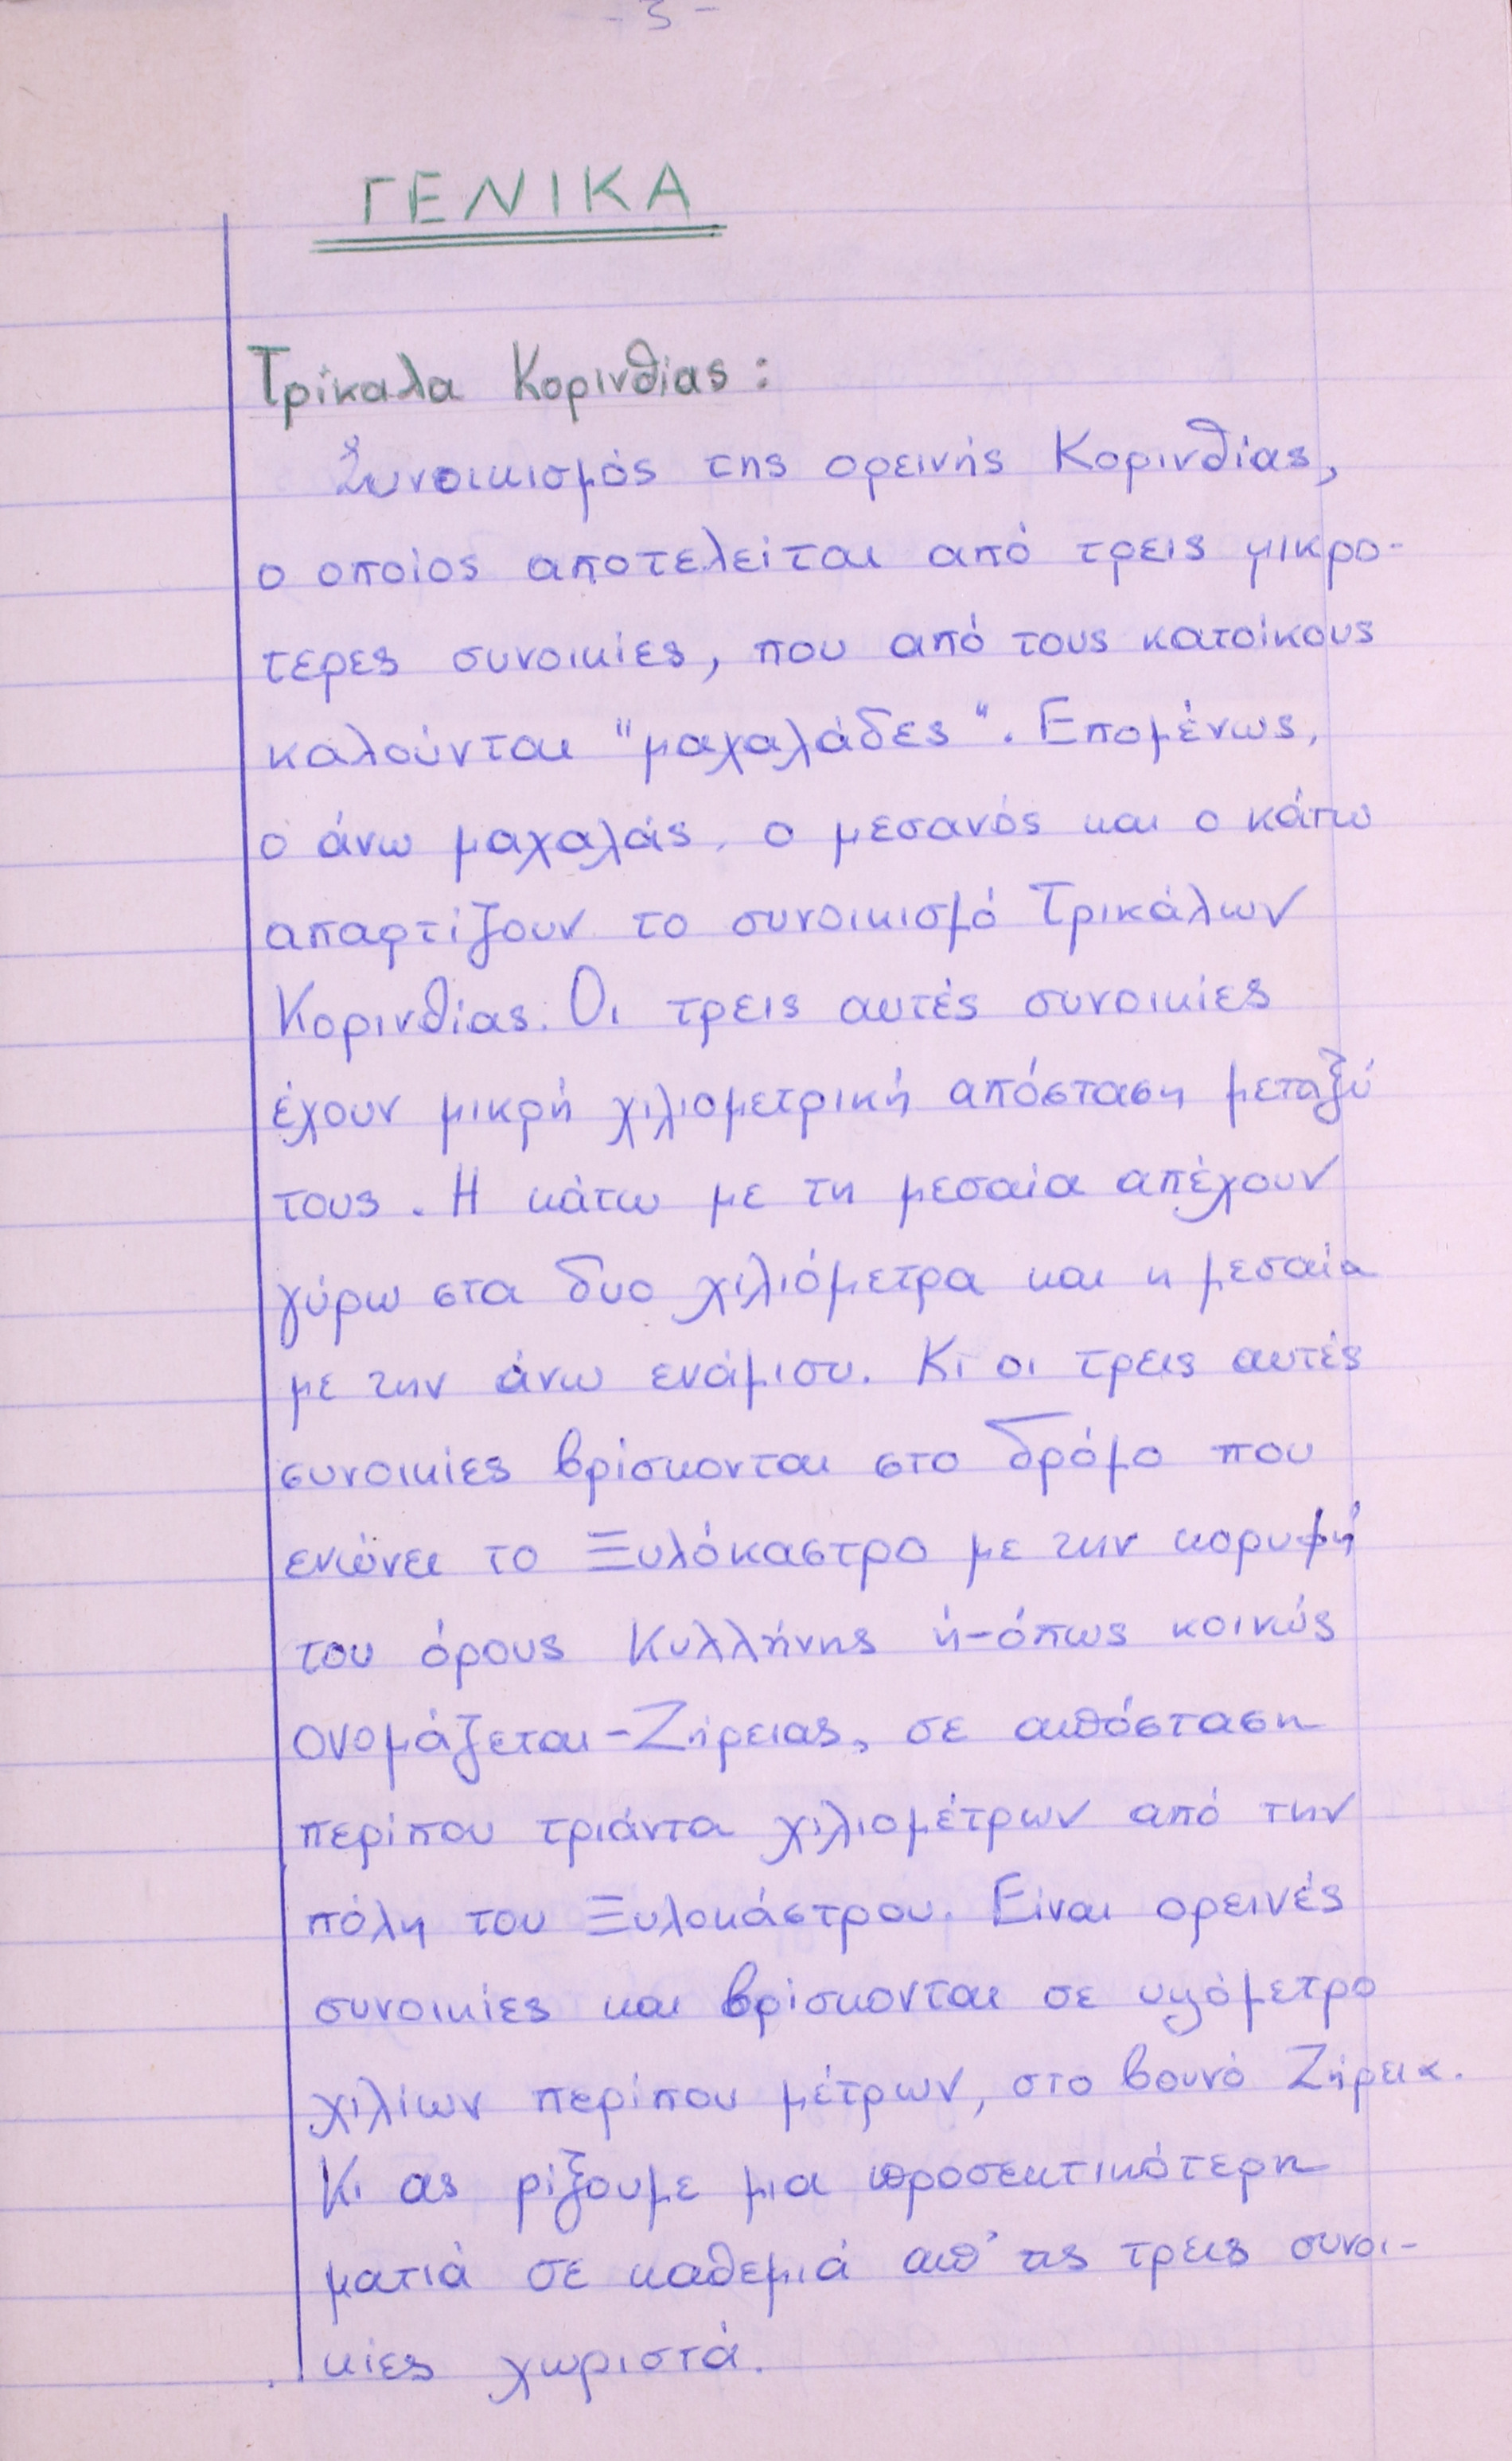 - 3 -
ΓΕΝΙΚΑ
Τρίκαλα Κορινθίας :
Συνοικισμός της ορεινής Κορινθίας,
ο οποίος αποτελείται από τρεις μικρο-
τερες συνοικίες, που από τους κατοίκους
καλούνται "μαχαλάδες". Επομένως,
ο άνω μαχαλάς, ο μεσανός και ο κάτω
απαρτίζουν το συνοικισμό Τρικάλων
Κορινθίας. Οι τρεις αυτές συνοικίες
έχουν μικρή χιλιομετρική απόσταση μεταξύ
τους. Η κάτω με τη μεσαία απέχουν
γύρω στα δυο χιλιόμετρα και η μεσαία
με την άνω ενάμισυ. Κι οι τρεις αυτές
συνοικίες βρίσκονται στο δρόμο που
ενώνει το Ξυλόκαστρο με την κορυφή
του όρους Κυλλήνης ή-όπως κοινώς
ονομάζεται-Ζήρειας, σε απόσταση
περίπου τριάντα χιλιομέτρων από την
πόλη του Ξυλοκάστρου. Είναι ορεινές
συνοικίες και βρίσκονται σε υψόμετρο
χιλίων περίπου μέτρων, στο βουνό Ζήρεια.
Κι ας ρίξουμε μια προσεκτικότερη
ματιά σε καθεμιά απ' τις τρεις συνοι-
κίες χωριστά.